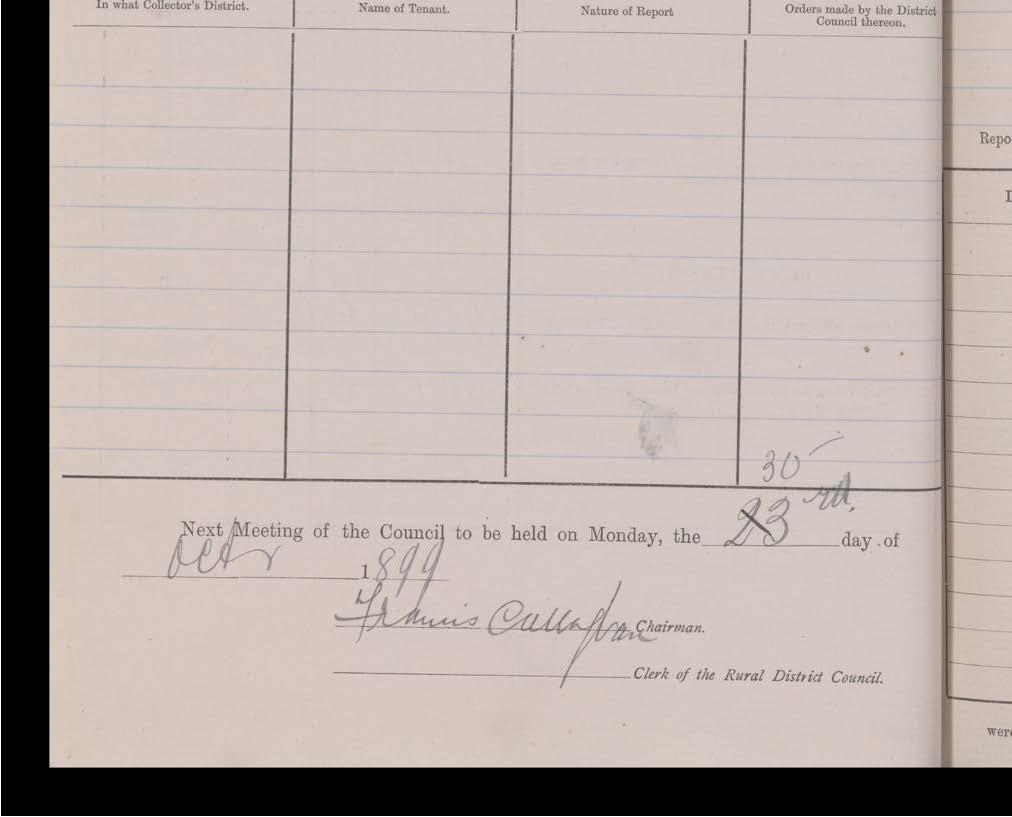 In what Collector's District. Name of Tenant. Nature of Report Orders made by the District Council thereon.
30
Next Meeting of the Council to be held on Monday, the 23rd. day of
Octr 1899
Francis Callaghan Chairman.
Clerk of the Rural District Council.
Repo
were